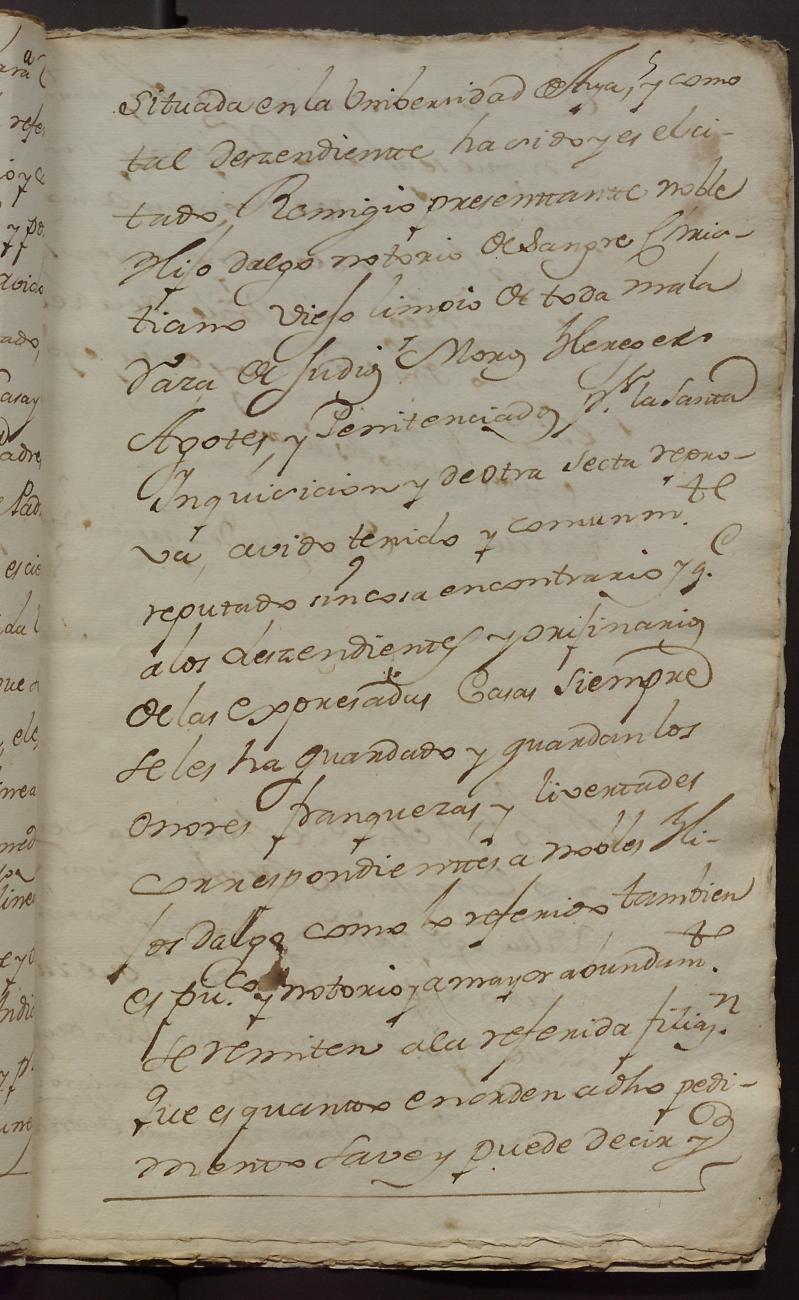 situada en la Unibersidad de Aya, y como
tal deszendiente ha sido y es el ci-
tado, Remigio presenttante noble
Hijo dalgo notorio de Sangre Chris-
tiano viejo limpio de toda mala
raza de Judios Moros Hereges
Agotes, y Penitenciados pr. la Santa
Inquisicion y de otra secta repro-
va, avido tenido y comunmte.
reputado sin cosa en contrario y qe.
a los deszendientes y orijinarios
de las expresadas Casas siempre
se les ha guardado y guardan los
onores franquezas, y livertades
correspondienttes a nobles Hi-
jos dalgo como lo referido tambien
es puco. y notorio y a mayor abundamte.
se remiten a la referida filiazn.
que es quanto en orden a dho pedi-
mento save y puede decir y